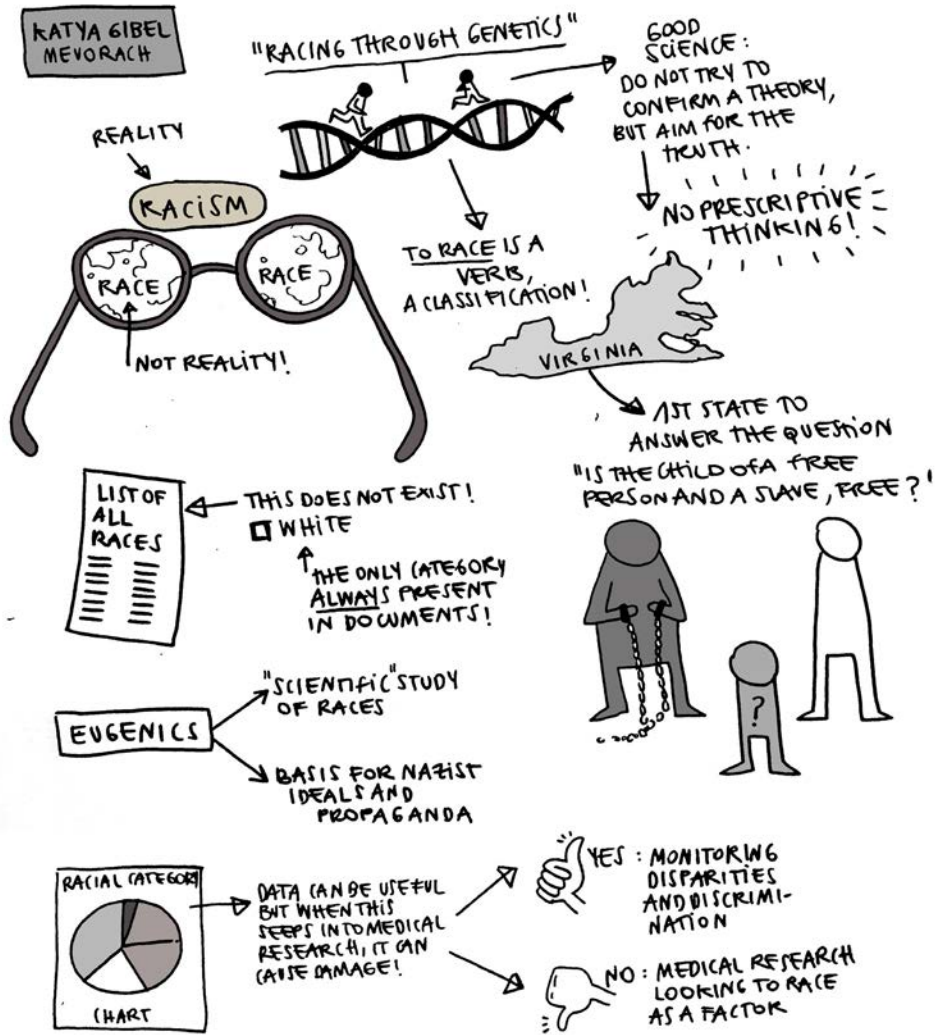 KATYA GIBEL
MEVORACH
"RACING THROUGH GENETICS"
GOOD
SCIENCE:
DO NOT TRY TO
CONFIRM A THEORY,
BUT AIM FOR THE
TRUTH.
NO PRESCRIPTIVE
THINKING!
REALITY
RACISM
RACE
RACE
NOT REALITY!
TO RACE IS A
VERB,
A CLASSIFICATION!
VIRGINIA
1ST STATE TO
ANSWER THE QUESTION
"IS THE CHILD OF A FREE
PERSON AND A SLAVE, FREE?"
?
LIST OF
ALL
RACES
THIS DOES NOT EXIST!
WHITE
THE ONLY CATEGORY
ALWAYS PRESENT
IN DOCUMENTS!
EUGENICS
"SCIENTIFIC" STUDY
OF RACES
BASIS FOR NAZIST
IDEALS AND
PROPAGANDA
RACIAL CATEGORY
CHART
DATA CAN BE USEFUL
BUT WHEN THIS
SEEPS INTO MEDICAL
RESEARCH, IT CAN
CAUSE DAMAGE!
YES: MONITORING
DISPARITIES
AND DISCRIMI-
NATION
NO: MEDICAL RESEARCH
LOOKING TO RACE
AS A FACTOR